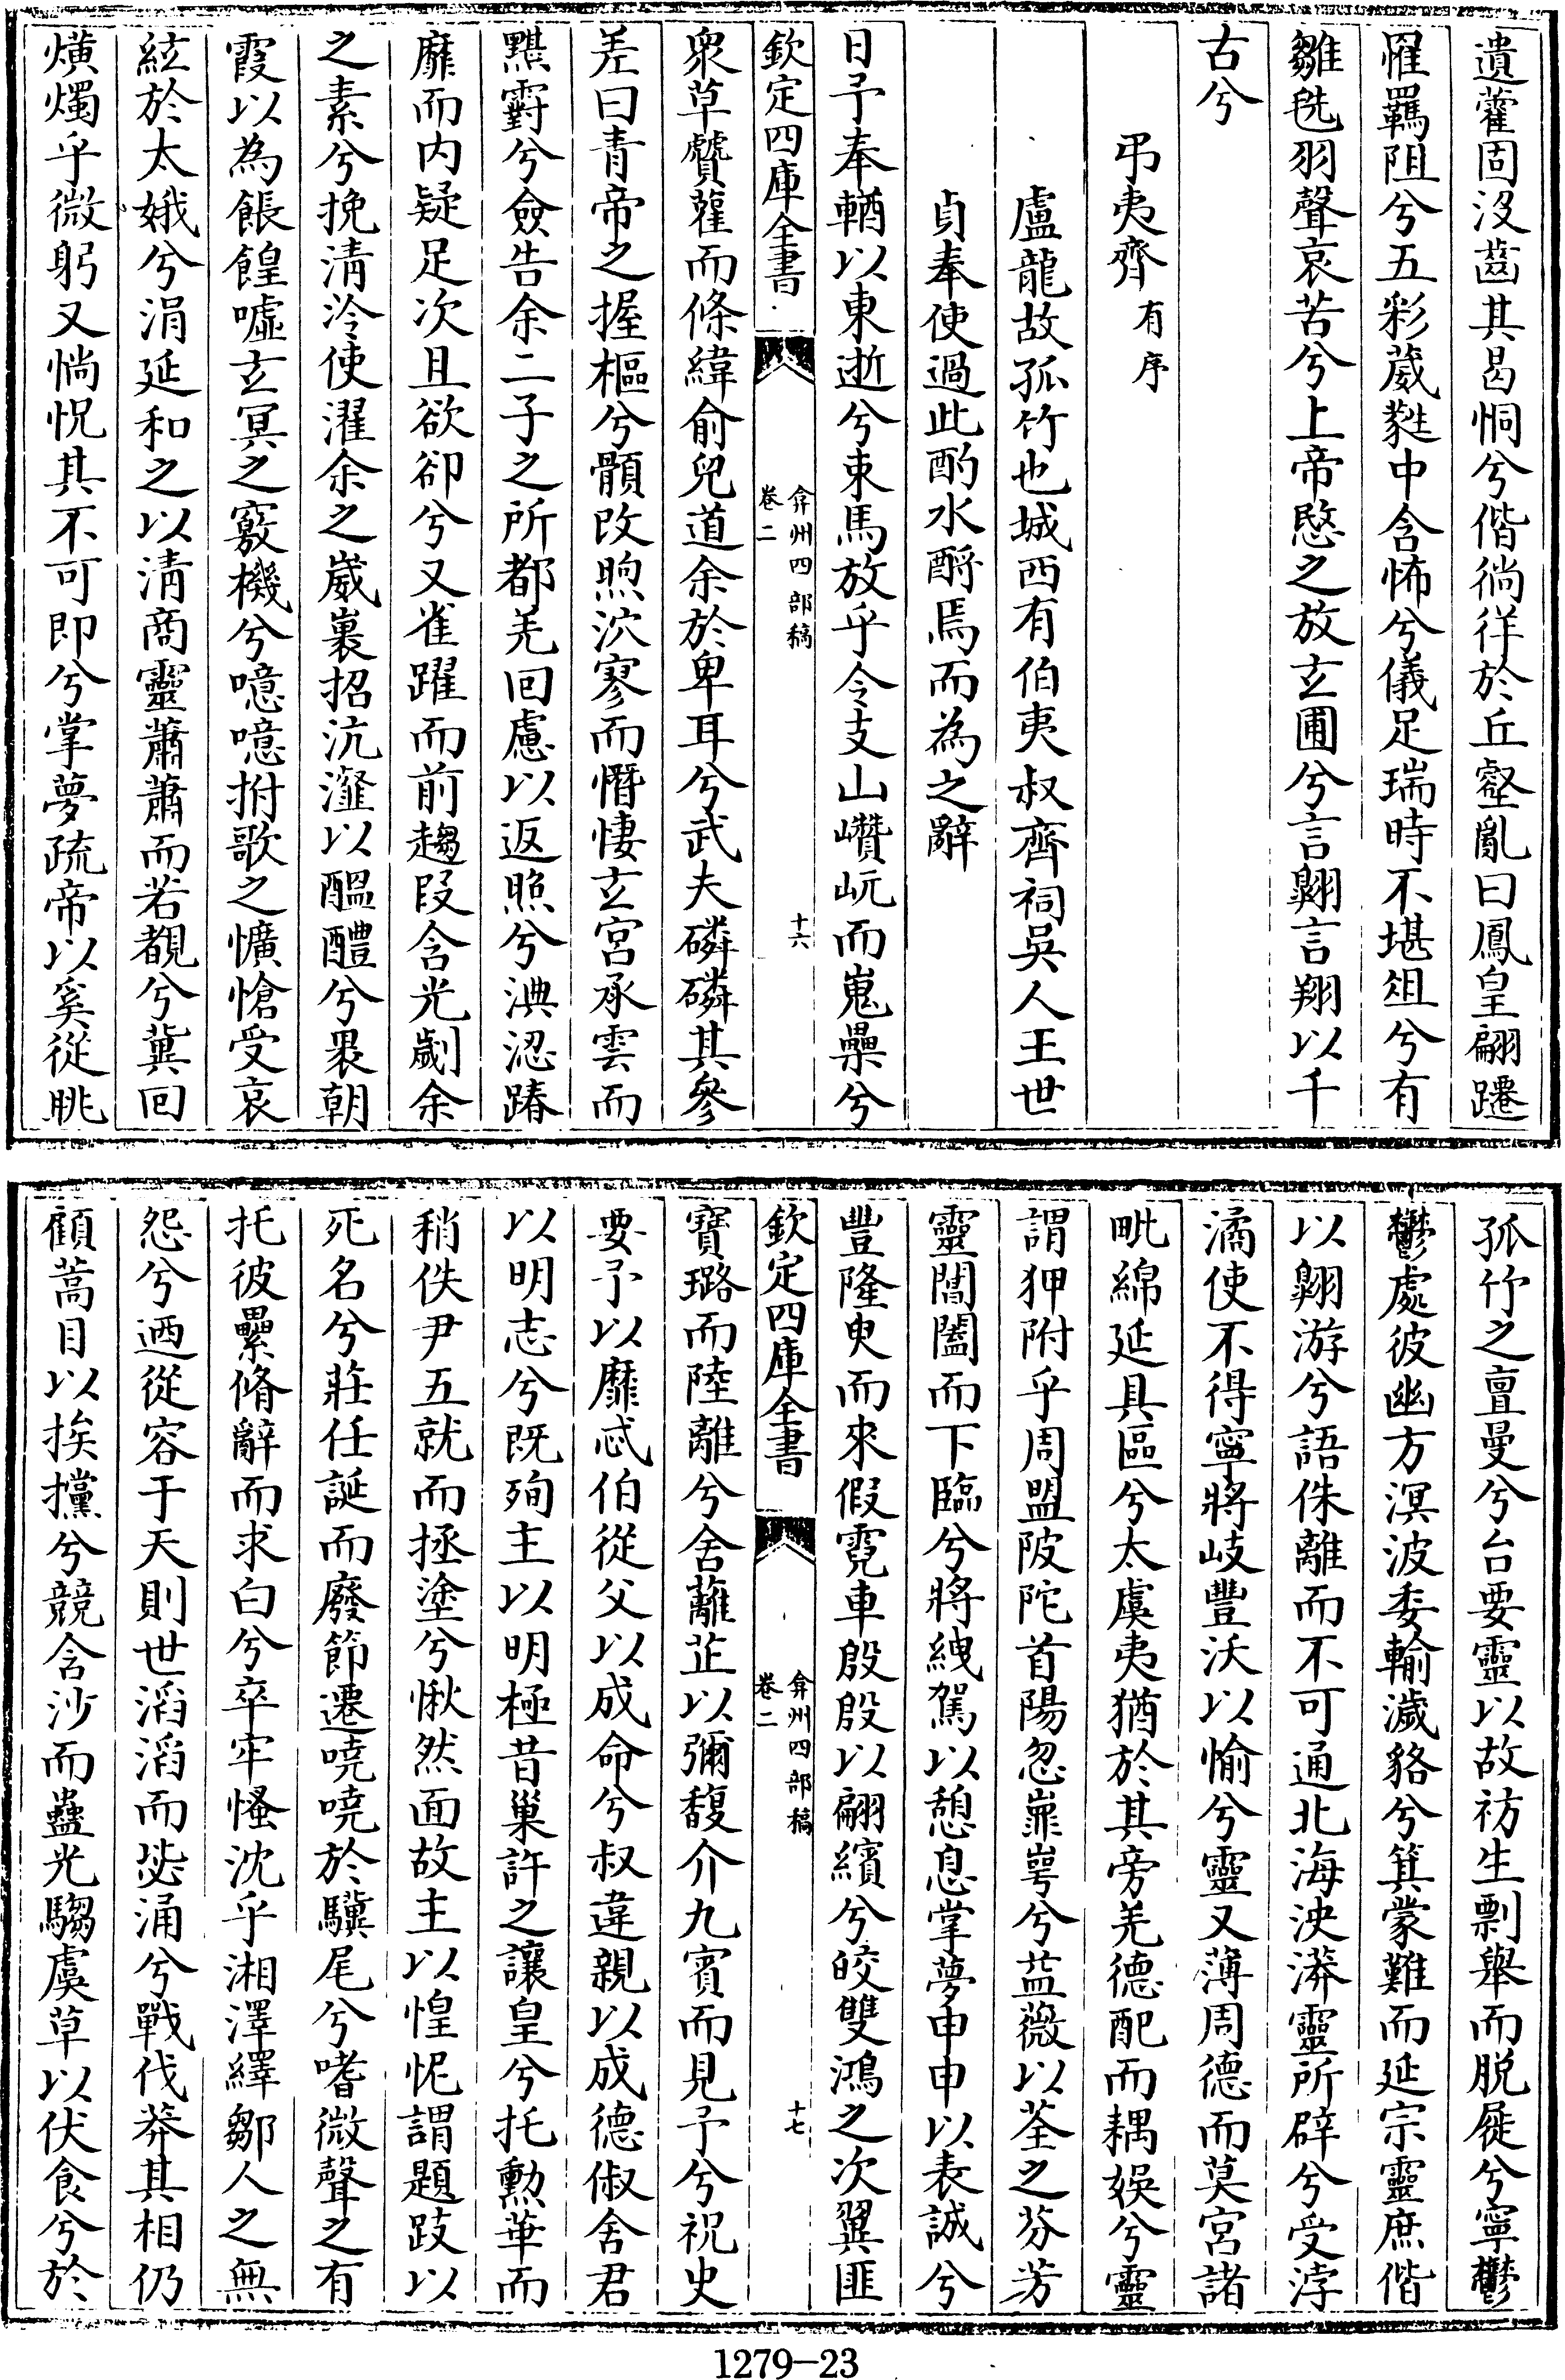 遺藿固沒齒其曷恫兮偕徜徉於丘壑亂曰鳳皇翩躚
罹羈阻兮五彩葳蕤中含怖兮儀足瑞時不堪俎兮有
雛毨羽聲哀苦兮上帝愍之放玄圃兮言翱言翔以千
古兮
弔夷齊有序
盧龍故孤竹也城西有伯夷叔齊祠吳人王世
貞奉使過此酌水酹焉而為之辭
日予奉輶以東逝兮束馬放乎令支山巑岏而嵬纍兮
欽定四庫全書
弇州四部稿
卷二
十六
衆草贙蘿而絛緯俞兒道余於卑耳兮武夫磷磷其參
差曰青帝之握樞兮顝改煦泬寥而憯悽玄宮承雲而
黮霨兮僉告余二子之所都羌回慮以返照兮淟涊踳
靡而内疑足次且欲卻兮又雀躍而前趨叚含光劌余
之素兮挽清泠使濯余之崴裏招沆瀣以醖醴兮褁朝
霞以為餦餭噓玄冥之竅機兮噫噫拊歌之懭愴受哀
絃於太娥兮涓延和之以清商靈蕭蕭而若覩兮冀回
爌燭乎微躬又惝怳其不可即兮掌夢疏帝以奚從眺
孤竹之亶曼兮台要靈以故祊生剽舉而脱屣兮寧鬱
鬱處彼幽方溟波委輸濊貉兮箕蒙難而延宗靈庶偕
以翱游兮語侏離而不可通北海泱漭靈所辟兮受浡
潏使不得寧將岐豐沃以愉兮靈又薄周德而莫宮諸
毗綿延具區兮太虞夷猶於其旁羌德配而耦娛兮靈
謂狎附乎周盟陂陀首陽忽崋崿兮葅薇以荃之芬芳
靈閶闔而下臨兮將緤駕以憩息掌夢申申以表誠兮
豐隆臾而來假霓車殷殷以翩繽兮皎雙鴻之次翼匪
欽定四庫全書
弇州四部稿
卷二
十七
寶璐而陸離兮舍蘺芷以彌馥介九賓而見予兮祝史
要予以靡忒伯從父以成命兮叔違親以成德俶舍君
以明志兮既殉主以明極昔巢許之讓皇兮托勲華而
稍佚尹五就而拯塗兮愀然面故主以惶怩謂題跂以
死名兮莊任誕而廢節遷嘵嘵於驥尾兮嗜微聲之有
托彼纍脩辭而求白兮卒牢慅沈乎湘澤繹鄒人之無
怨兮迺從容于天則世滔滔而毖涌兮戰伐莽其相仍
顧蒿目以挨攩兮競含沙而蠱光騶虞草以伏食兮於
1279-23